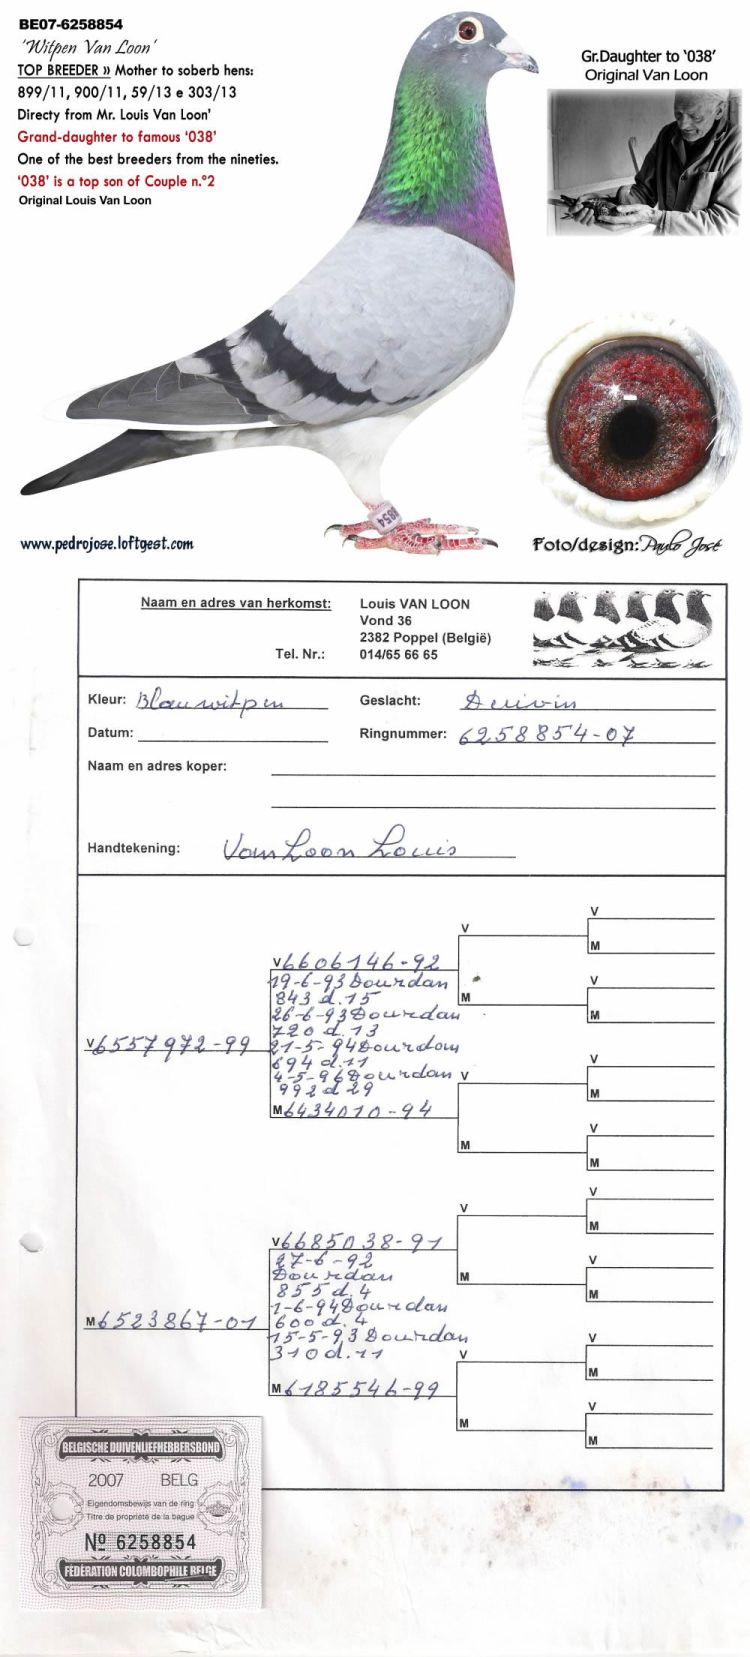 BE07-6258854
'Witpen Van Loon'
TOP BREEDER » Mother to soberb hens:
899/11, 900/11, 59/13 e 303/13
Directy from Mr. Louis Van Loon'
Grand-daughter to famous '038'
One of the best breeders from the nineties.
'038' is a top son of Couple n.º2
Original Louis Van Loon
Gr.Daughter to '038'
Original Van Loon
8854
www.pedrojose.loftgest.com
Foto/design: Paulo José
Naam en adres van herkomst: Louis VAN LOON
Vond 36
2382 Poppel (België)
Tel. Nr.: 014/65 66 65
Kleur: Blauwitpen Geslacht: Duivin
Datum: Ringnummer: 6258854-07
Naam en adres koper:
Handtekening: Van Loon Louis
V 6557972-99
V 6606146-92
19-6-93 Dourdan
843 d. 15
26-6-93 Dourdan
720 d. 13
21-5-94 Dourdan
694 d. 11
4-5-96 Dourdan
992 d 29
M 6434010-94
V
M
V
M
V
M
V
M
V
M
V
M
M 6523867-01
V 6685038-91
27-6-92
Dourdan
855 d. 4
1-6-94 Dourdan
600 d. 4
15-5-93 Dourdan
310 d. 11
M 6185546-99
V
M
V
M
V
M
V
M
V
M
V
M
BELGISCHE DUIVENLIEFHEBBERSBOND
2007 BELG
Eigendomsbewijs van de ring
Titre de propriété de la bague
Nº 6258854
FÉDÉRATION COLOMBOPHILE BELGE